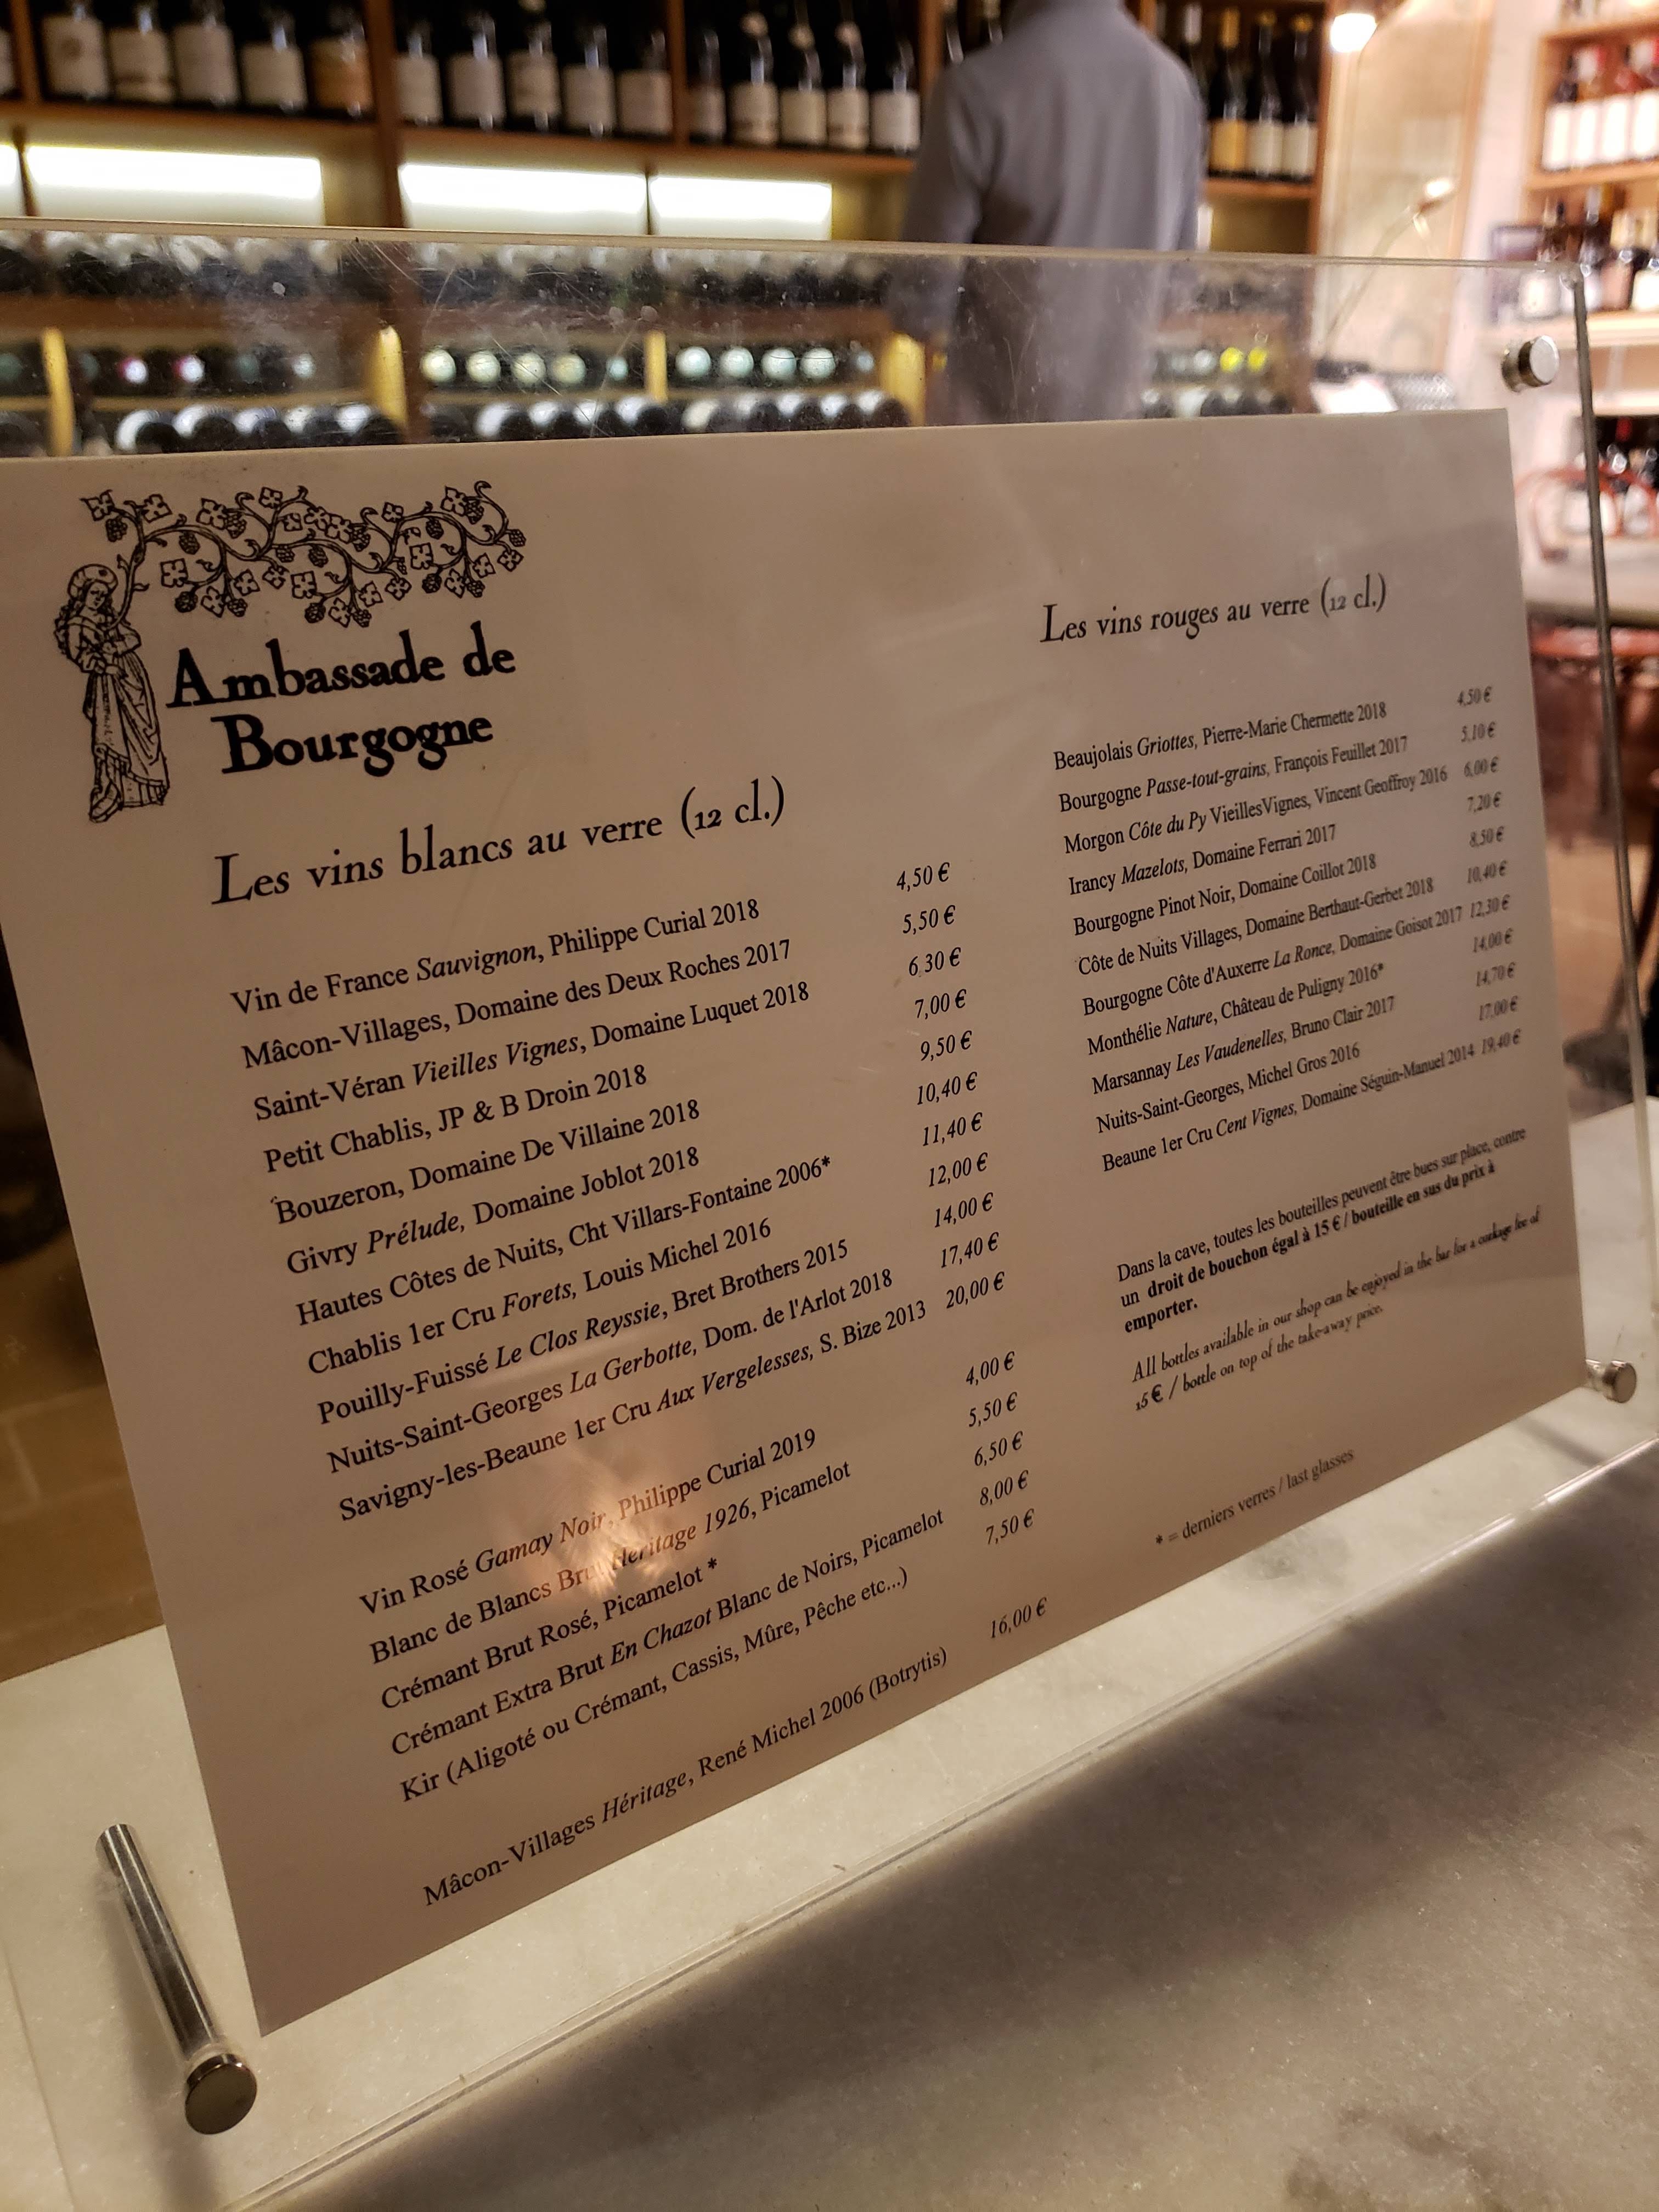 Ambassade de
Bourgogne
Les vins blancs au verre (12 cl.)
Vin de France Sauvignon, Philippe Curial 2018 4,50 €
Mâcon-Villages, Domaine des Deux Roches 2017 5,50 €
Saint-Véran Vieilles Vignes, Domaine Luquet 2018 6,30 €
Petit Chablis, JP & B Droin 2018 7,00 €
Bouzeron, Domaine De Villaine 2018 9,50 €
Givry Prélude, Domaine Joblot 2018 10,40 €
Hautes Côtes de Nuits, Cht Villars-Fontaine 2006* 11,40 €
Chablis 1er Cru Forets, Louis Michel 2016 12,00 €
Pouilly-Fuissé Le Clos Reyssie, Bret Brothers 2015 14,00 €
Nuits-Saint-Georges La Gerbotte, Dom. de l'Arlot 2018 17,40 €
Savigny-les-Beaune 1er Cru Aux Vergelesses, S. Bize 2013 20,00 €
Vin Rosé Gamay Noir, Philippe Curial 2019 4,00 €
Blanc de Blancs Brut Heritage 1926, Picamelot 5,50 €
Crémant Brut Rosé, Picamelot * 6,50 €
Crémant Extra Brut En Chazot Blanc de Noirs, Picamelot 8,00 €
Kir (Aligoté ou Crémant, Cassis, Mûre, Pêche etc...) 7,50 €
Mâcon-Villages Héritage, René Michel 2006 (Botrytis) 16,00 €
Les vins rouges au verre (12 cl.)
Beaujolais Griottes, Pierre-Marie Chermette 2018 4,50 €
Bourgogne Passe-tout-grains, François Feuillet 2017 5,10 €
Morgon Côte du Py VieillesVignes, Vincent Geoffroy 2016 6,00 €
Irancy Mazelots, Domaine Ferrari 2017 7,20 €
Bourgogne Pinot Noir, Domaine Coillot 2018 8,50 €
Côte de Nuits Villages, Domaine Berthaut-Gerbet 2018 10,40 €
Bourgogne Côte d'Auxerre La Ronce, Domaine Goisot 2017 12,30 €
Monthélie Nature, Château de Puligny 2016* 14,00 €
Marsannay Les Vaudenelles, Bruno Clair 2017 14,70 €
Nuits-Saint-Georges, Michel Gros 2016 17,00 €
Beaune 1er Cru Cent Vignes, Domaine Séguin-Manuel 2014 19,40 €
Dans la cave, toutes les bouteilles peuvent être bues sur place, contre
un droit de bouchon égal à 15 € / bouteille en sus du prix à
emporter.
All bottles available in our shop can be enjoyed in the bar for a corkage fee of
15 € / bottle on top of the take-away price.
* = derniers verres / last glasses